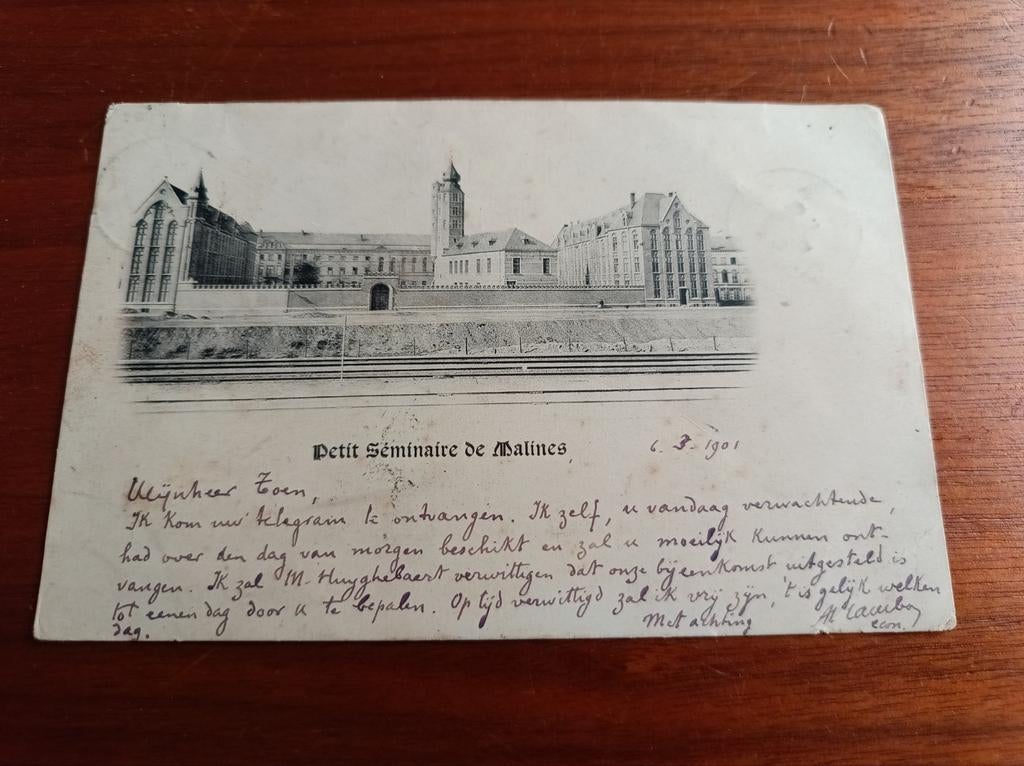 Petit Séminaire de Malines
6. 3. 1901
Mijnheer Toen,
Ik kom uw telegram te ontvangen. Ik zelf, u vandaag verwachtende,
had over den dag van morgen beschikt en zal u moeilijk kunnen ont-
vangen. Ik zal M. Huyghebaert verwittigen dat onze bijeenkomst uitgesteld is
tot eenen dag door u te bepalen. Op tijd verwittigd zal ik vrij zijn, 't is gelijk welken
dag.
Met achting
econ.